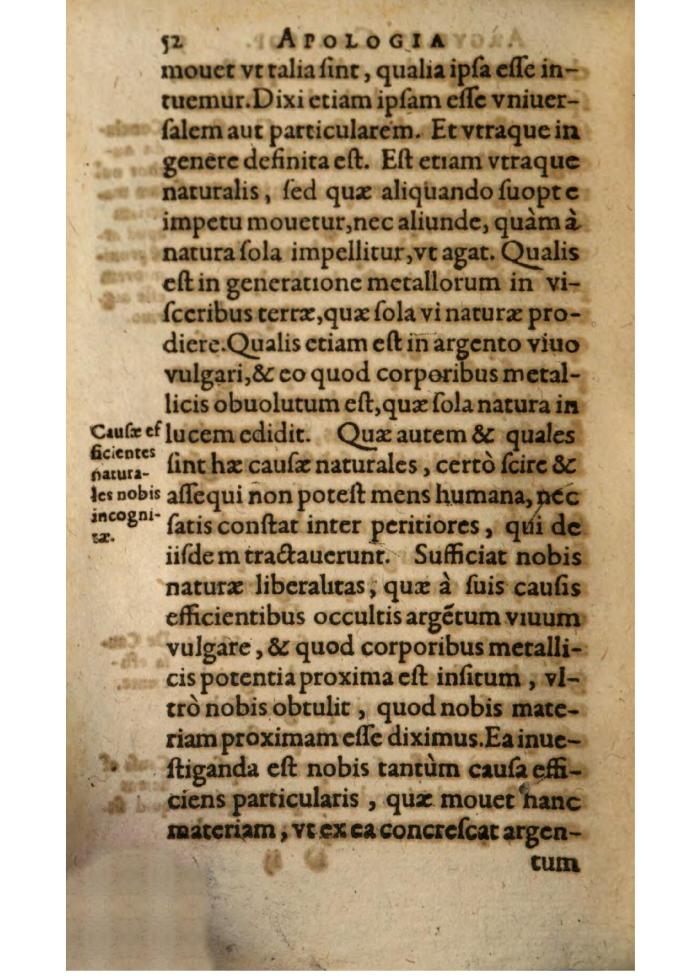 52 APOLOGIA
mouet vt talia ſint, qualia ipſa eſſe in-
tuemur. Dixi etiam ipſam eſſe vniuer-
ſalem aut particularem. Et vtraque in
genere definita eſt. Eſt etiam vtraque
naturalis, ſed quæ aliquando ſuopte
impetu mouetur, nec aliunde, quàm à
natura ſola impellitur, vt agat. Qualis
eſt in generatione metallorum in vi-
ſceribus terræ, quæ ſola vi naturæ pro-
diere. Qualis etiam eſt in argento viuo
vulgari, & eo quod corporibus metal-
licis obuolutum eſt, quæ ſola natura in
lucem edidit. Quæ autem & quales
ſint hæ cauſæ naturales, certò ſcire &
aſſequi non poteſt mens humana, nec
ſatis conſtat inter peritiores, qui de
iiſdem tractauerunt. Sufficiat nobis
naturæ liberalitas, quæ à ſuis cauſis
efficientibus occultis argẽtum viuum
vulgare, & quod corporibus metalli-
cis potentia proxima eſt inſitum, vl-
trò nobis obtulit, quod nobis mate-
riam proximam eſſe diximus. Ea inue-
ſtiganda eſt nobis tantùm cauſa effi-
ciens particularis, quæ mouet hanc
materiam, vt ex ea concreſcat argen-
tum
Cauſæ ef
ficientes
natura-
les nobis
incogni-
tæ.